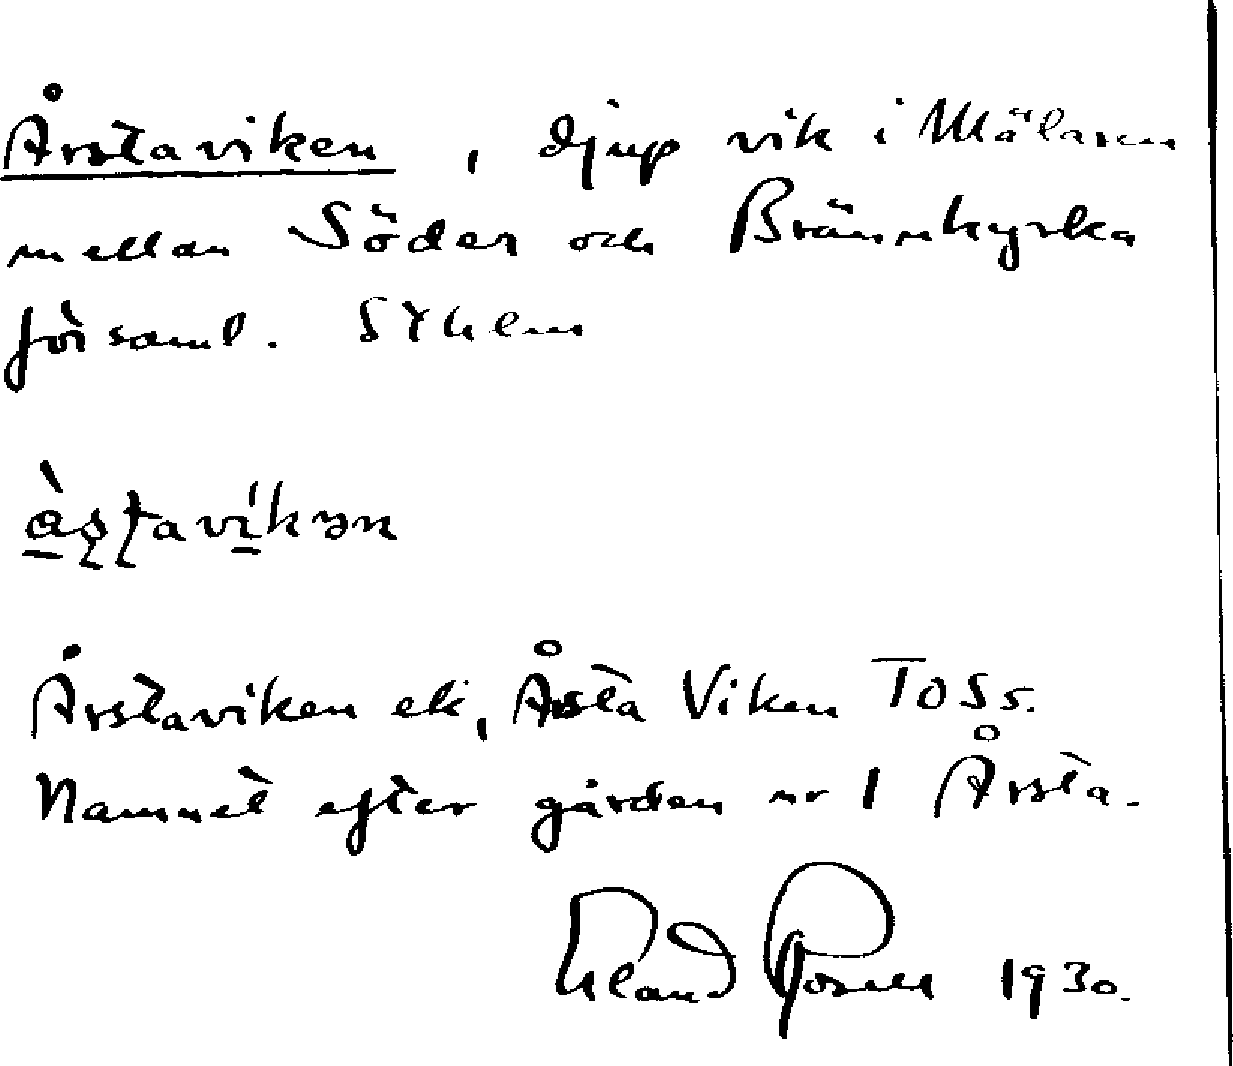 Årstaviken, djup vik i Mälaren
mellan Söder och Brännkyrka
församl. Sthlm
Årstaviken ek, Årsta Viken TOSs.
Namnet efter gården nr 1 Årsta.
Erland Rosell 1930.